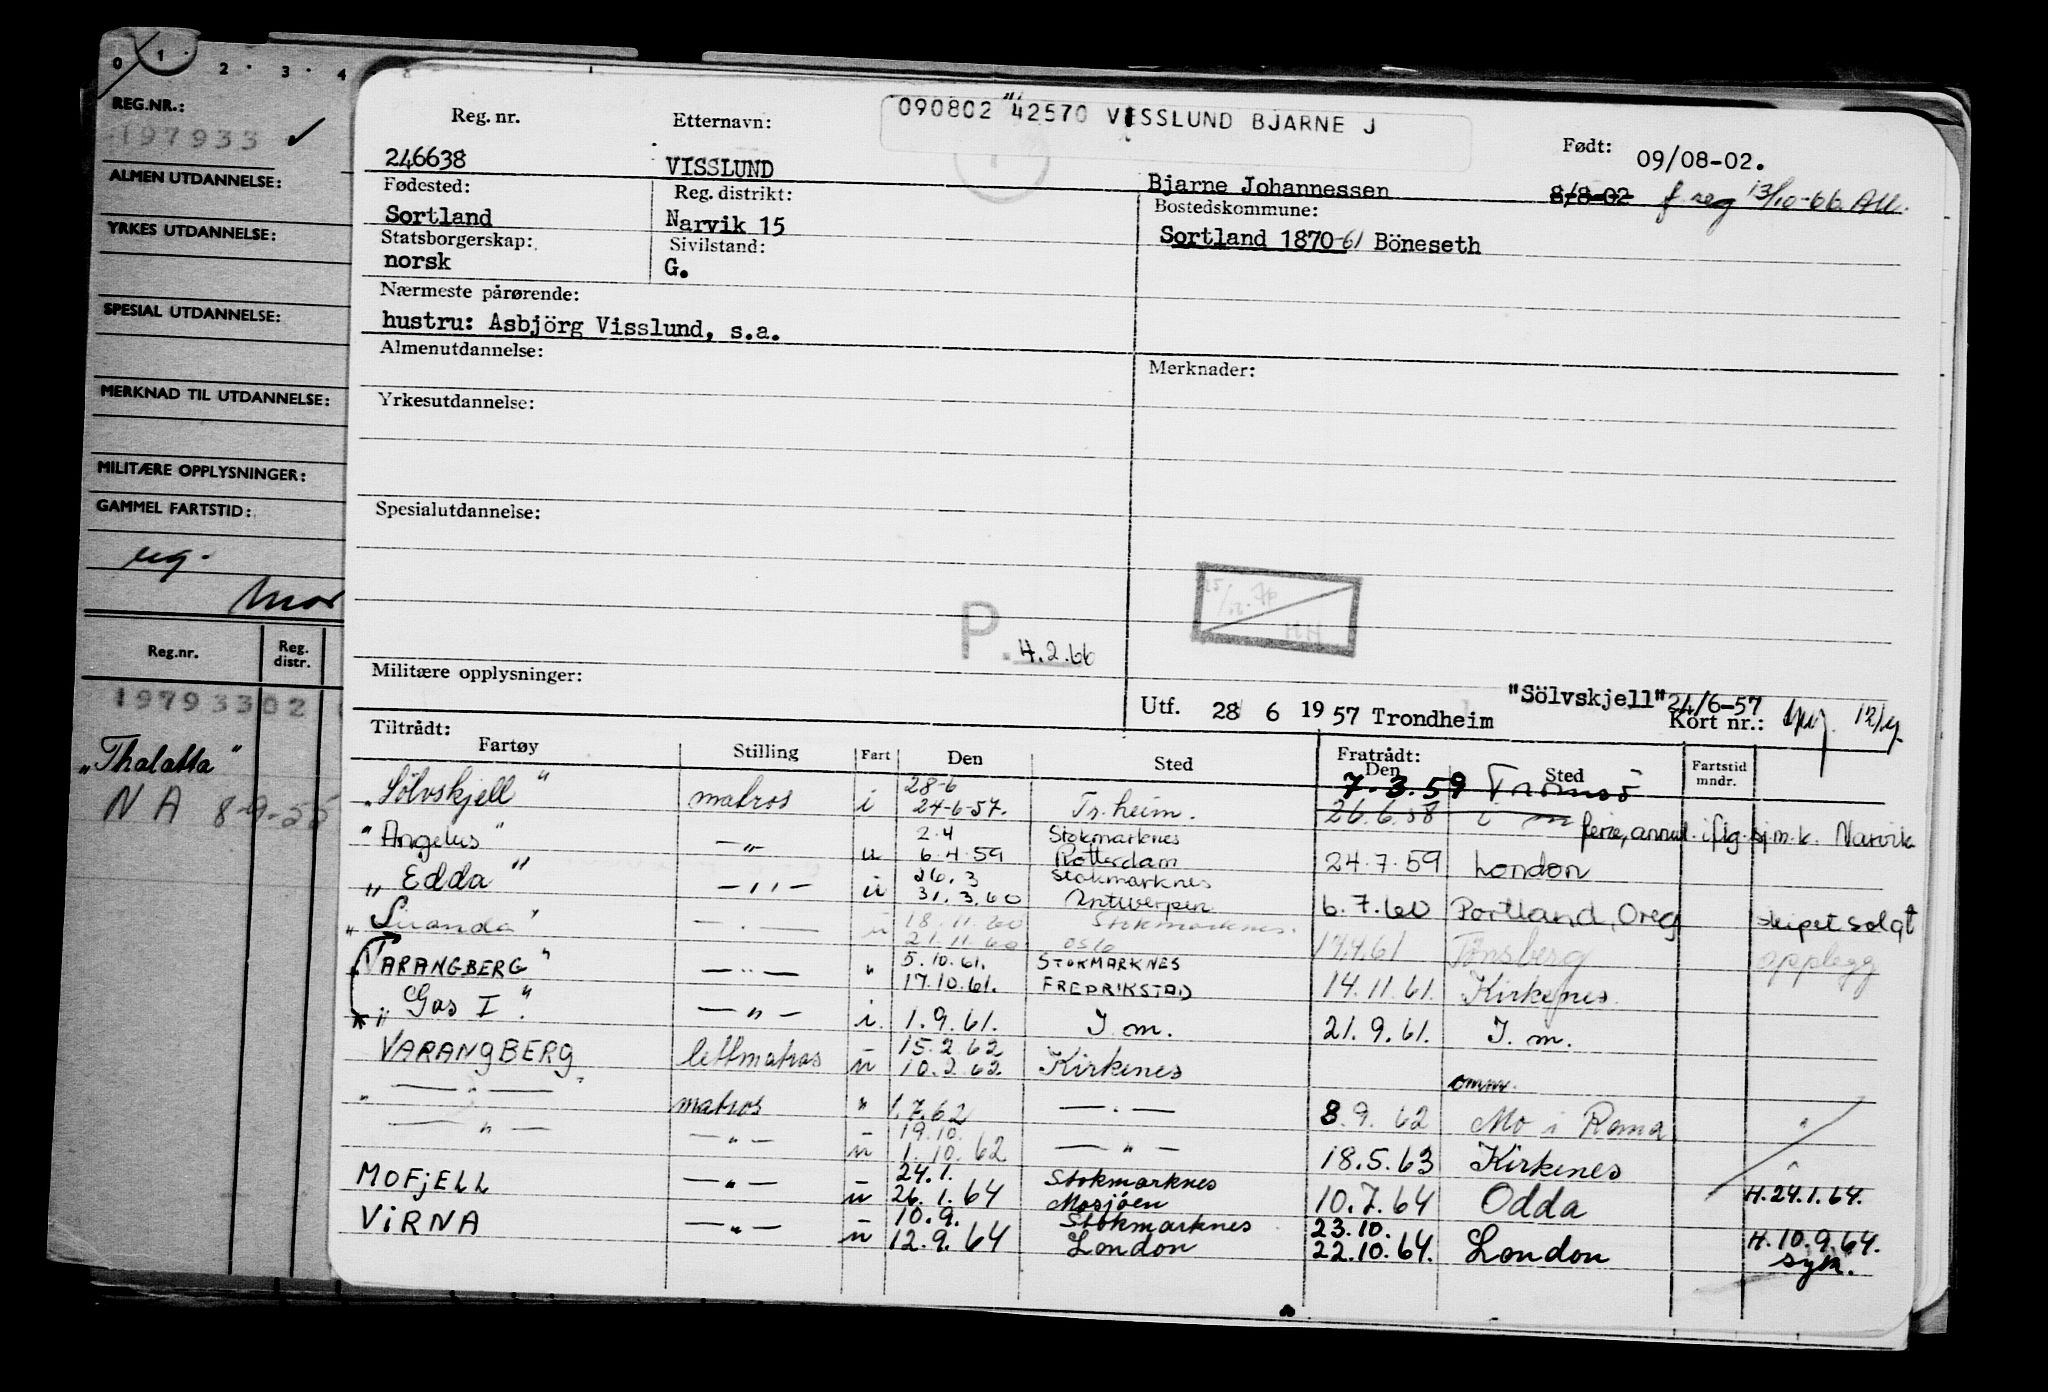 0 1 · 2 · 3 · 4
REG.NR.:
197933 ✓
ALMEN UTDANNELSE:
YRKES UTDANNELSE:
SPESIAL UTDANNELSE:
MERKNAD TIL UTDANNELSE:
MILITÆRE OPPLYSNINGER:
GAMMEL FARTSTID:
Reg.nr. Reg. distr.
197933 02
"Thalatta"
N A 8-9-55
090802 42570 VISSLUND BJARNE J
Reg. nr. Etternavn: Født:
246638 VISSLUND Bjarne Johannessen 09/08-02.
8/8-02 f. reg 13/10-66 AU.
Fødested: Reg. distrikt: Bostedskommune:
Sortland Narvik 15 Sortland 1870-61 Böneseth
Statsborgerskap: Sivilstand:
norsk G.
Nærmeste pårørende:
hustru: Asbjörg Visslund, s.a.
Almenutdannelse: Merknader:
Yrkesutdannelse:
Spesialutdannelse:
P. 4.2.66
HH
Militære opplysninger:
Utf. 28 6 1957 Trondheim "Sölvskjell" 24/6-57 Kort nr.:
Tiltrådt: Fratrådt:
Fartøy Stilling Fart Den Sted Den Sted Fartstid mndr.
"Sölvskjell" matros i 28-6 24-6-57. Tr.heim. 7.3.59 Tromsö
26.6.58 i m ferie, annul. iflg. sj.m.k. Narvik
"Angelus" — " — u 2.4 Stokmarknes
6.4.59 Rotterdam 24.7.59 London
"Edda" — " — u 26.3 Stokmarknes
31.3.60 Antwerpen 6.7.60 Portland, Oreg skipet solgt
"Luanda" — " — u 18.11.60 Stokmarknes.
21.11.60 Oslo 17.4.61 Tönsberg opplegg
VARANGBERG" — " — " 5.10.61. STOKMARKNES
17.10.61. FREDRIKSTAD 14.11.61. Kirkenes
"Gas I". — " — i. 1.9.61. I m. 21.9.61. I. m.
VARANGBERG lettmatros u 15.2 62
10.2 62. Kirkenes omm.
— " — matros " 1.7.62 — " — 8.9.62 Mo i Rana "
— " — — " — u 19.10.
1.10.62 — " — 18.5.63 Kirkenes
MOFJELL — " — u 24.1. Stokmarknes
26.1.64 Mosjöen 10.7.64 Odda H.24.1.64.
VIRNA — " — u 10.9. Stokmarknes 23.10.
12.9.64 London 22.10.64. London H.10.9.64. syk.